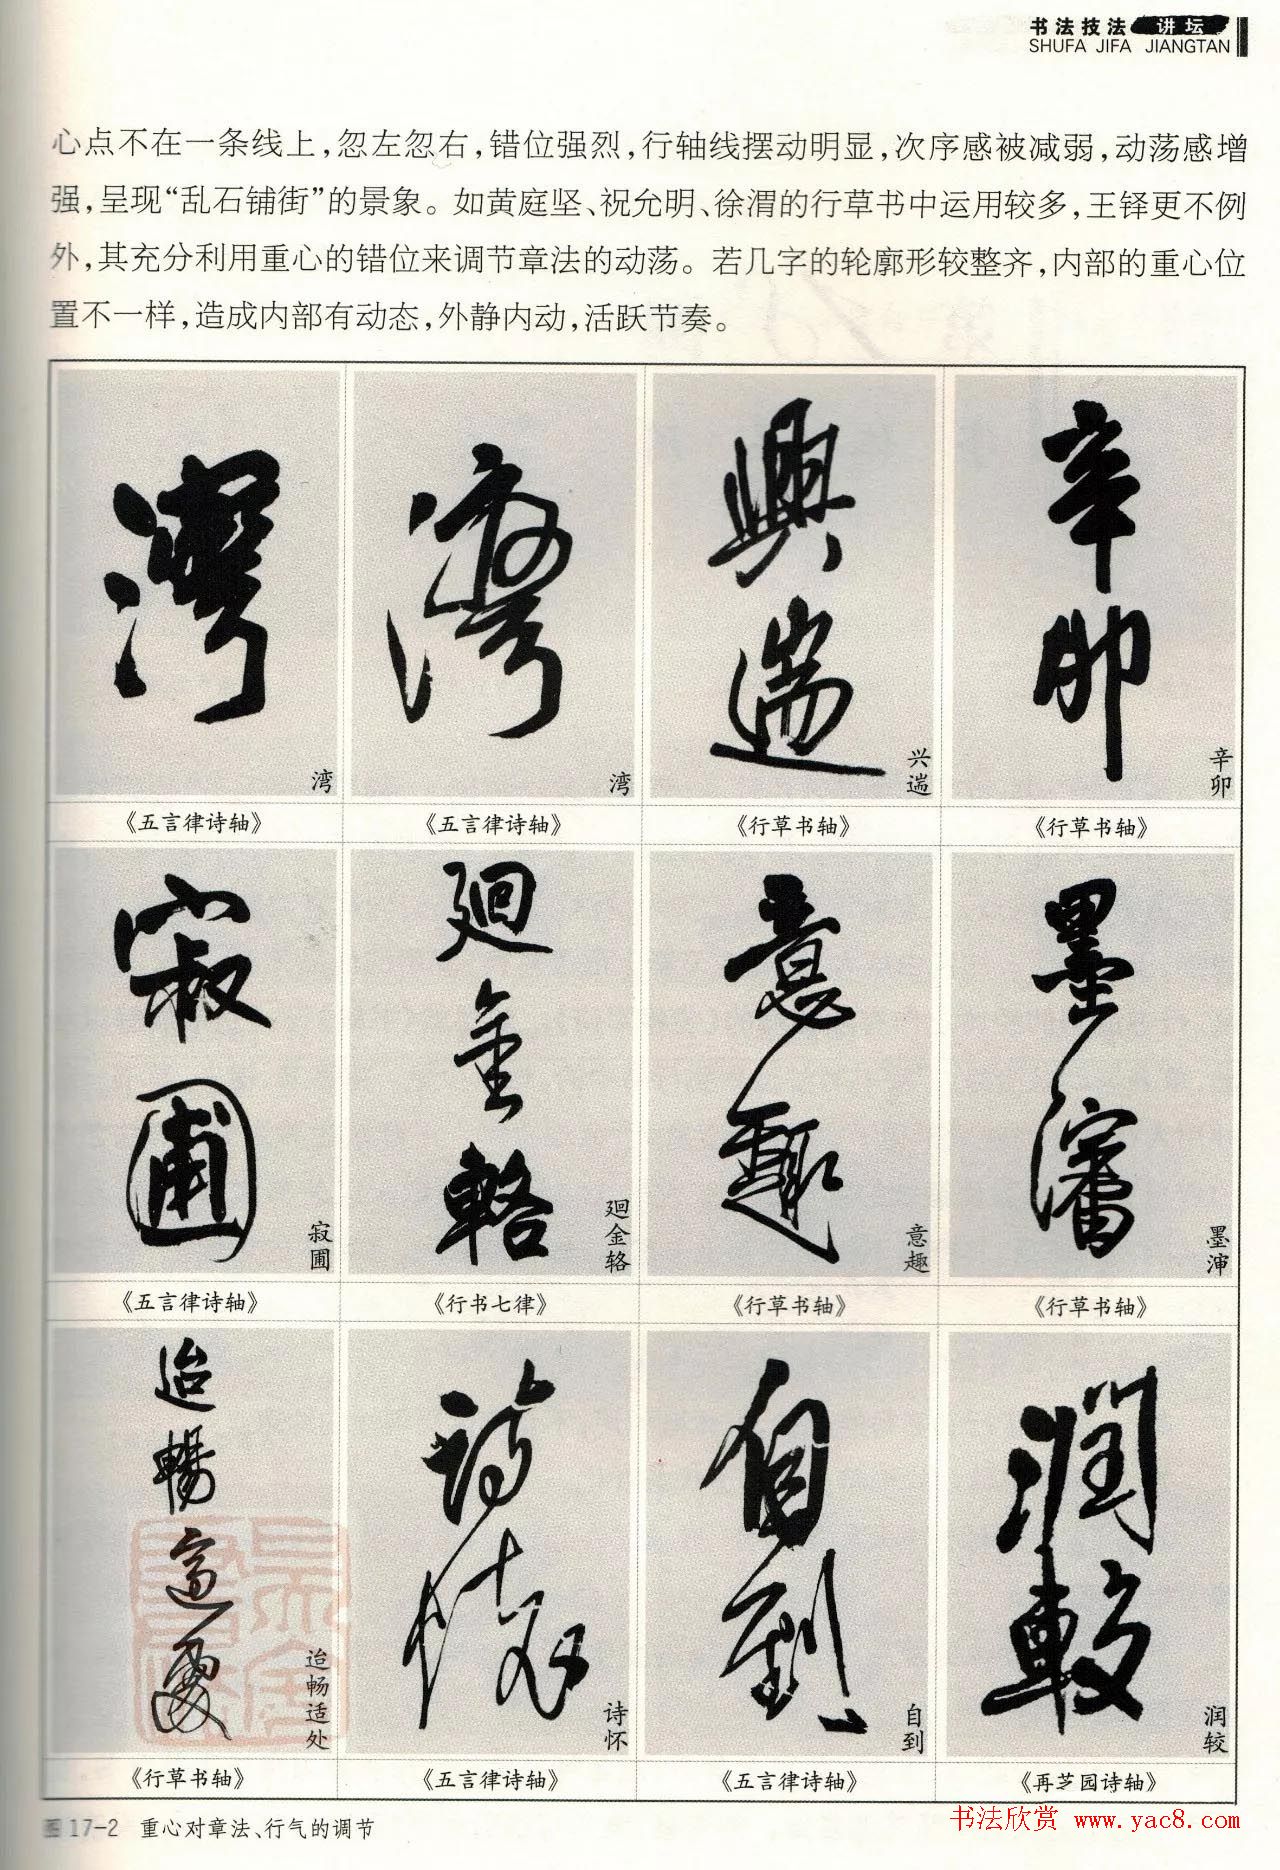 书法技法 讲坛
SHUFA JIFA JIANGTAN
心点不在一条线上，忽左忽右，错位强烈，行轴线摆动明显，次序感被减弱，动荡感增
强，呈现“乱石铺街”的景象。如黄庭坚、祝允明、徐渭的行草书中运用较多，王铎更不例
外，其充分利用重心的错位来调节章法的动荡。若几字的轮廓形较整齐，内部的重心位
置不一样，造成内部有动态，外静内动，活跃节奏。
灣
湾
《五言律诗轴》
灣
湾
《五言律诗轴》
興遄
兴遄
《行草书轴》
辛卯
辛卯
《行草书轴》
寂圃
寂圃
《五言律诗轴》
廻金輅
廻金辂
《行书七律》
意趣
意趣
《行草书轴》
墨瀋
墨渖
《行草书轴》
迨暢適處
迨畅适处
《行草书轴》
詩懷
诗怀
《五言律诗轴》
自到
自到
《五言律诗轴》
潤較
润较
《再芝园诗轴》
图 17-2 重心对章法、行气的调节
书法欣赏 www.yac8.com